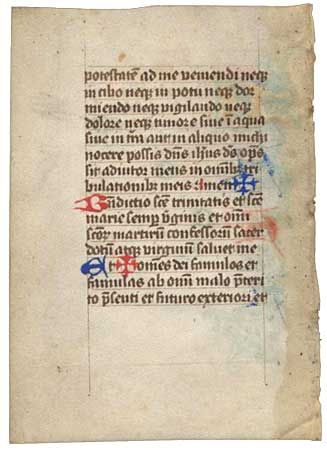 potestatem ad me veniendi neqz
in cibo neqz in potu neqz dor
miendo neqz vigilando neqz
dolore neqz timore siue i aqua
siue in tra aut in aliquo michi
nocere possis dns ihus ds ops
sit adiutor meus in omibz tri
bulationibz meis Amen ✠
Bndictio sce trinitatis et sce
marie semp vginis et omi
scor martirum confessorum sacer
dotum atqz virginum saluet me
Et ✠ omes dei famulos et
famulas ab omi malo pteri
to psenti et futuro exteriori et